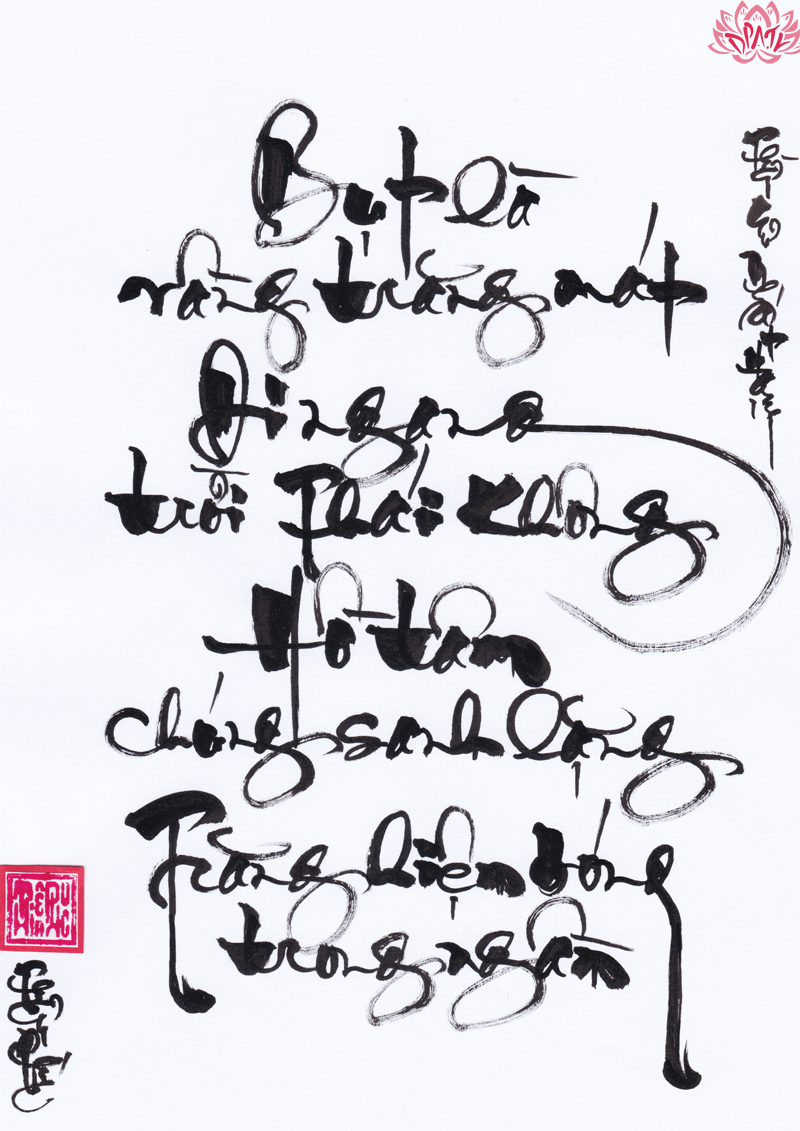 Bụt là
vầng trăng mát
Đi ngang
trời Thái Không
Hồ tâm
chúng sanh lặng
Trăng hiện bóng
trong ngần